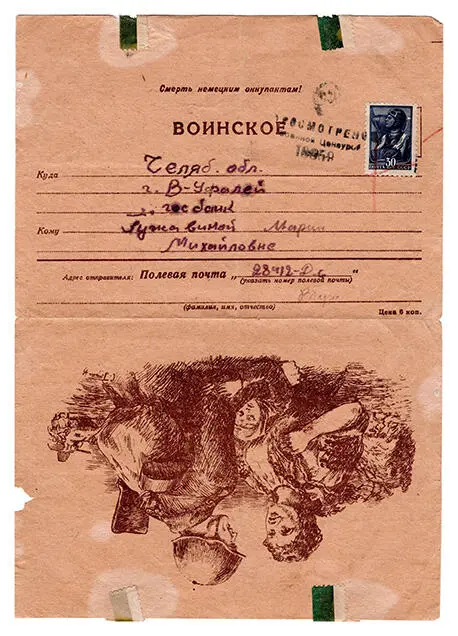 Смерть немецким оккупантам!
ПРОСМОТРЕНО
Военной Цензурой
ВОИНСКОЕ
30
ПОЧТА СССР
Куда Челяб. обл.
г. В-Уфалей
госбанк
Кому Лужавиной Марии
Михайловне
Адрес отправителя: Полевая почта „28412-Д
(указать номер полевой почты)
(фамилия, имя, отчество)
Цена 6 коп.